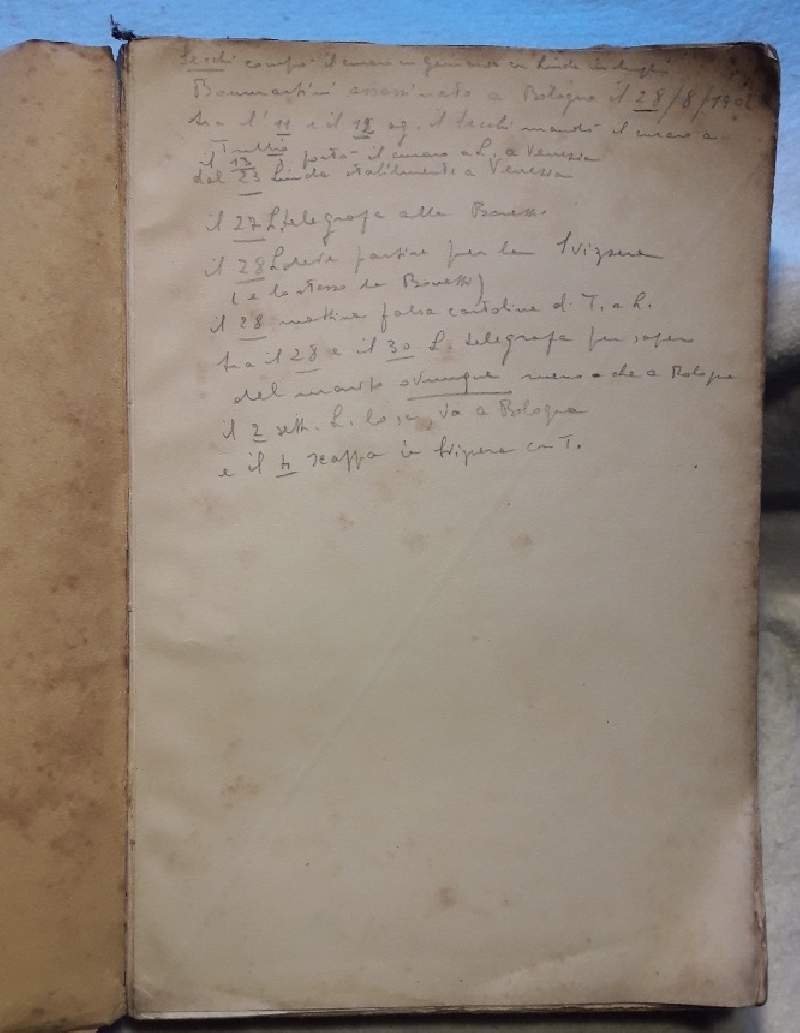 Secchi comprò il curaro in gennaio e Linda in luglio
Bonmartini assassinato a Bologna il 28/8/1902
tra l' 11 e il 12 ag. il Secchi mandò il curaro a
Tullio
il 13 portò il curaro a L. a Venezia
dal 23 Linda stabilmente a Venezia
il 27 L. telegrafa alla Bonetti
il 28 L. deve partire per la Svizzera
(e lo stesso la Bonetti)
il 28 mattina falsa cartolina di T. a L.
tra il 28 e il 30 L. telegrafa per sapere
del marito ovunque meno che a Bologna
il 2 sett. L. lo sa, va a Bologna
e il 4 scappa in Svizzera con T.